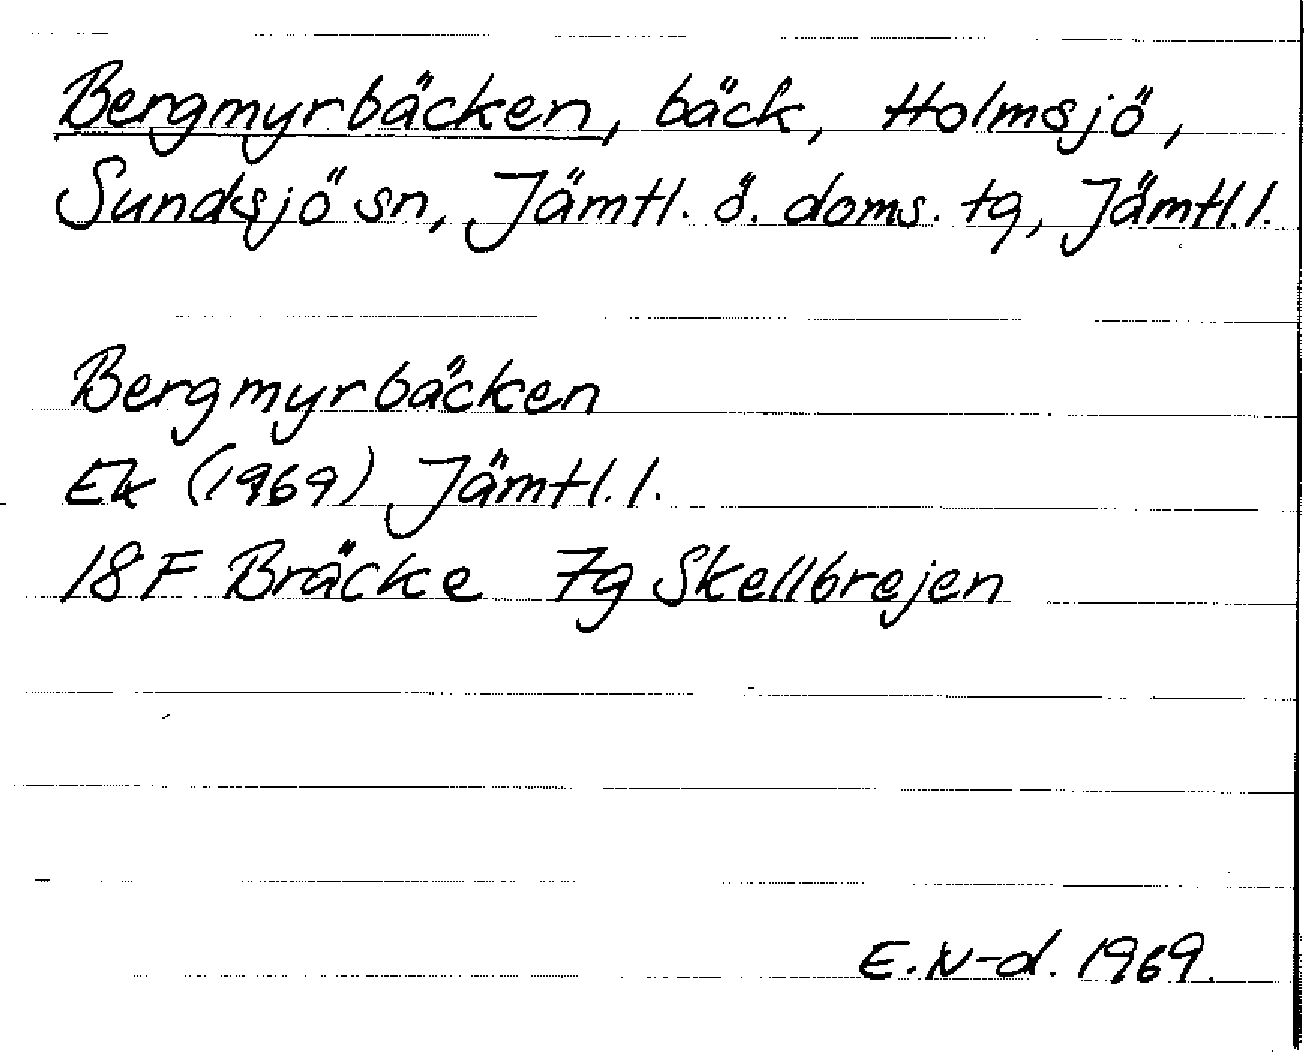 Bergmyrbäcken, bäck, Holmsjö,
Sundsjö sn, Jämtl. ö. doms. tg, Jämtl. l.
Bergmyrbäcken
Ek (1969) Jämtl. l.
18F Bräcke 7g Skellbrejen
E. N-d. 1969.